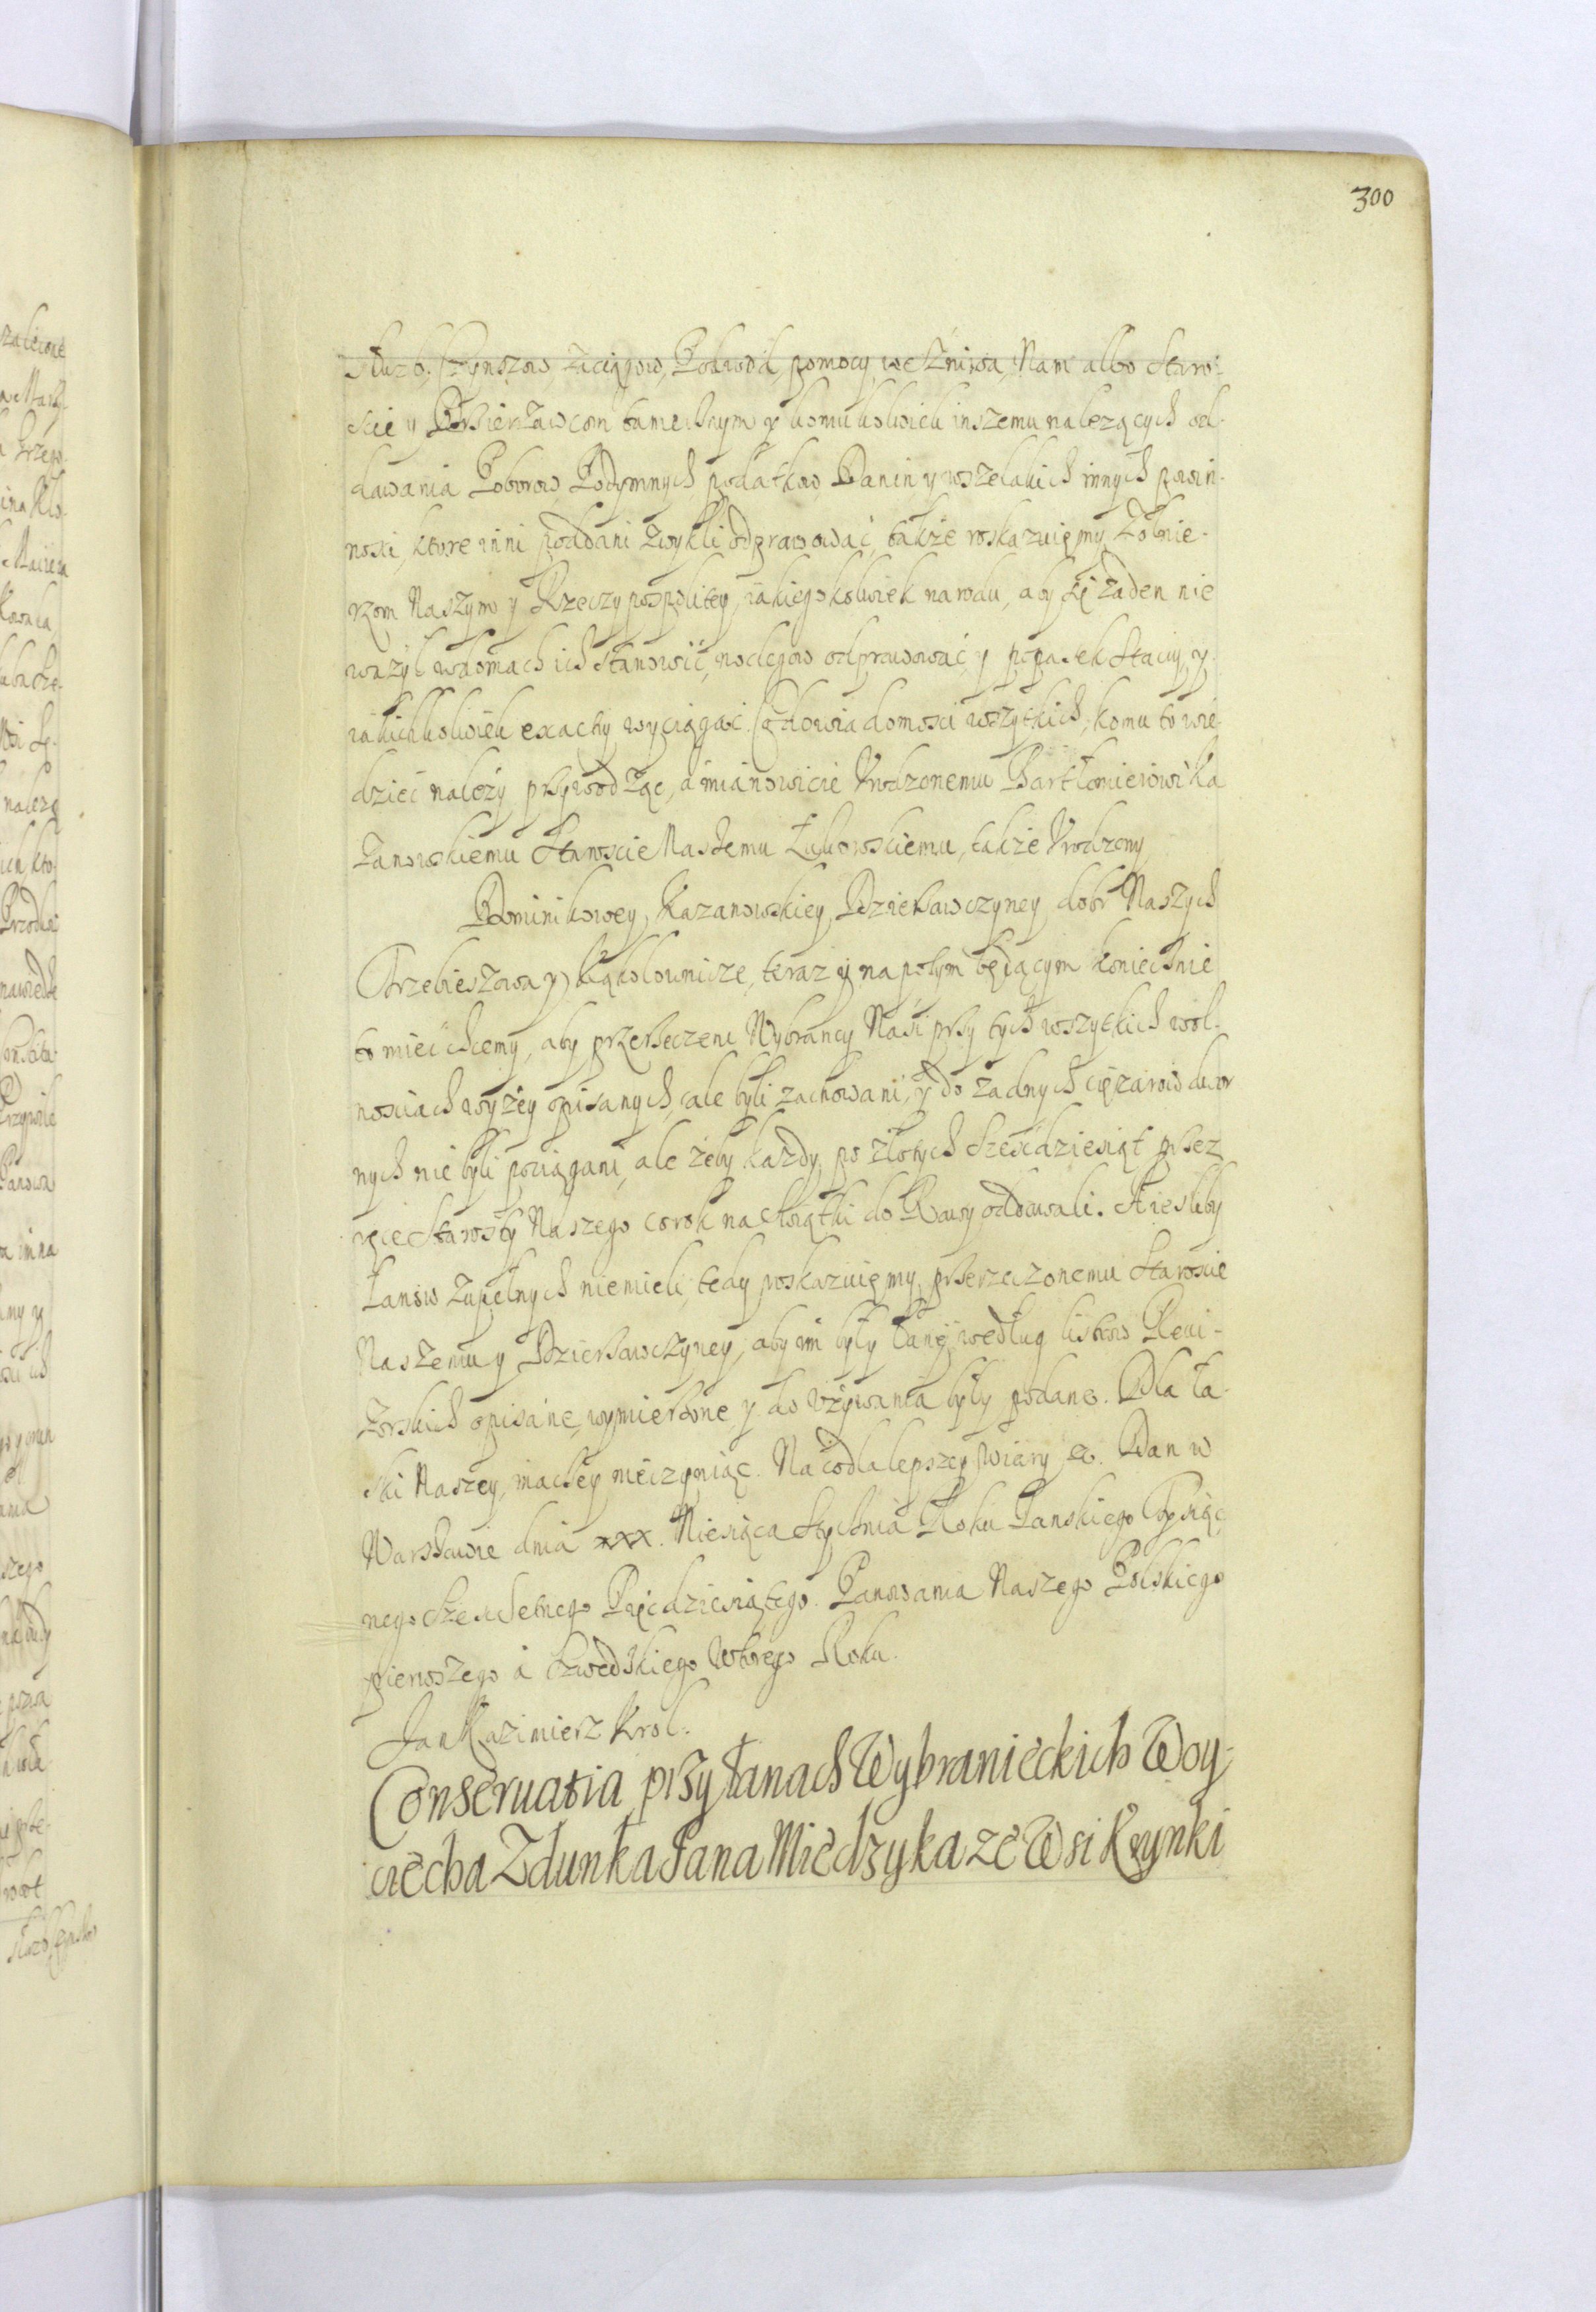 300
Służb, Czynszow, zaciągow, Podwod, pomocy we Żniwa, Nam albo Staro-
scie y Dzierzawcom tamecznym y komukolwiek inszemu należących od-
dawania Poborow, Podymnych podatkow Danin y wszelakich innych powin-
nosci, ktore inni poddani zwykli odprawować, także roskazuięmy Żołnie-
rzom Naszym y Rzeczypospolitey, iakiegokolwiek narodu, aby się żaden nie
ważył w domach ich Stanowić, noclegow odprawować y popasek Stacyi, y
iakichkolwiek exactiy wyciągać. Co do wiadomosci wszytkich, komu to wie-
dzieć należy przywodząc, a mianowicie Vrodzonemu Bartłomieiowi Ka
zanowskiemu Staroscie Naszemu Łukowskiemu, także Vrodzoney
Dominikowey Kazanowskiey Dzierżawczyney dobr Naszych
Trzebieszowa y Kąkolownicze, teraz y na potym będącym koniecznie
to mieć chcemy, aby przerzeczeni Wybrancy Nasi przy tych wszytkich wol-
nosciach wyżey opisanych, cale byli zachowani, y do żadnych ciężarow dwor
nych nie byli pociągani, ale żeby każdy po złotych Sześćdziesiąt przez
ręce Starosty Naszego co rok na Swiątki do Rawy oddawali. A iesliby
Łanow zupełnych nie mieli, tedy roskazuięmy przerzeczonemu Staroscie
Naszemu y Dzierżawczyney, aby im były Łany według listow Rewi-
zorskich opisane, wymierzone y do vżywania były podane. Dla ła-
ski Naszey, inaczey nie czyniąc. Na co dla lepszey wiary etc. Dan w
Warszawie dnia xxx. Miesiąca Stycznia Roku Panskiego Tysiąc
nego Szescsetnego Pięćdziesiątego. Panowania Naszego Polskiego
pierwszego a Szwedzkiego wtorego Roku.
Jan Kazimierz Krol.
Conseruatia przy Łanach Wybranieckich Woy-
ciecha Zdunka Jana Miedzyka ze Wsi Krynki